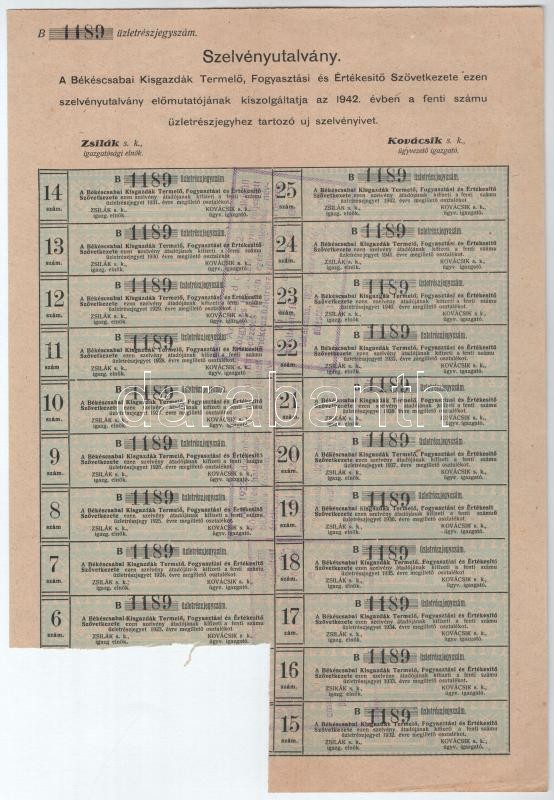 B 1189 üzletrészjegyszám.
Szelvényutalvány.
A Békéscsabai Kisgazdák Termelő, Fogyasztási és Értékesitő Szövetkezete ezen
szelvényutalvány előmutatójának kiszolgáltatja az 1942. évben a fenti számu
üzletrészjegyhez tartozó uj szelvényivet.
Zsilák s. k., Kovácsik s. k.,
igazgatósági elnök. ügyvezető igazgató.
14 szám.
B 1189 üzletrészjegyszám.
A Békéscsabai Kisgazdák Termelő, Fogyasztási és Értékesitő
Szövetkezete ezen szelvény átadójának kifizeti a fenti számu
üzletrészjegyet 1931. évre megillető osztalékot.
ZSILÁK s. k., KOVÁCSIK s. k.,
igazg. elnök. ügyv. igazgató.
13 szám.
B 1189 üzletrészjegyszám.
A Békéscsabai Kisgazdák Termelő, Fogyasztási és Értékesitő
Szövetkezete ezen szelvény átadójának kifizeti a fenti számu
üzletrészjegyet 1930. évre megillető osztalékot.
ZSILÁK s. k., KOVÁCSIK s. k.,
igazg. elnök. ügyv. igazgató.
12 szám.
B 1189 üzletrészjegyszám.
A Békéscsabai Kisgazdák Termelő, Fogyasztási és Értékesitő
Szövetkezete ezen szelvény átadójának kifizeti a fenti számu
üzletrészjegyet 1929. évre megillető osztalékot.
ZSILÁK s. k., KOVÁCSIK s. k.,
igazg. elnök. ügyv. igazgató.
11 szám.
B 1189 üzletrészjegyszám.
A Békéscsabai Kisgazdák Termelő, Fogyasztási és Értékesitő
Szövetkezete ezen szelvény átadójának kifizeti a fenti számu
üzletrészjegyet 1928. évre megillető osztalékot.
ZSILÁK s. k., KOVÁCSIK s. k.,
igazg. elnök. ügyv. igazgató.
10 szám.
B 1189
A Békéscsabai Kisgazdák Termelő, Fogyasztási és Értékesitő
Szövetkezete ezen szelvény átadójának kifizeti a fenti számu
ZSILÁK s. k., KOVÁCSIK s. k.,
igazg. elnök. ügyv. igazgató.
9 szám.
B 1189 üzletrészjegyszám.
A Békéscsabai Kisgazdák Termelő, Fogyasztási és Értékesitő
Szövetkezete ezen szelvény átadójának kifizeti a fenti számu
üzletrészjegyet 1926. évre megillető osztalékot.
ZSILÁK s. k., KOVÁCSIK s. k.,
igazg. elnök. ügyv. igazgató.
8 szám
B 1189 üzletrészjegyszám.
A Békéscsabai Kisgazdák Termelő, Fogyasztási és Értékesitő
Szövetkezete ezen szelvény átadójának kifizeti a fenti számu
üzletrészjegyet 1925. évre megillető osztalékot.
ZSILÁK s. k., KOVÁCSIK s. k.,
igazg. elnök. ügyv. igazgató.
7 szám
B 1189 üzletrészjegyszám.
A Békéscsabai Kisgazdák Termelő, Fogyasztási és Értékesitő
Szövetkezete ezen szelvény átadójának kifizeti a fenti számu
üzletrészjegyet 1924. évre megillető osztalékot.
ZSILÁK s. k., KOVÁCSIK s. k.,
igazg. elnök. ügyv. igazgató.
6 szám.
B 1189 üzletrészjegyszám.
A Békéscsabai Kisgazdák Termelő, Fogyasztási és Értékesitő
Szövetkezete ezen szelvény átadójának kifizeti a fenti számu
üzletrészjegyet 1923. évre megillető osztalékot.
ZSILÁK s. k., KOVÁCSIK s. k.,
igazg. elnök. ügyv. igazgató.
25 szám.
B 1189 üzletrészjegyszám.
A Békéscsabai Kisgazdák Termelő, Fogyasztási és Értékesitő
Szövetkezete ezen szelvény átadójának kifizeti a fenti számu
üzletrészjegyet 1942. évre megillető osztalékot.
ZSILÁK s. k., KOVÁCSIK s. k.,
igazg. elnök. ügyv. igazgató.
24 szám.
B 1189 üzletrészjegyszám.
A Békéscsabai Kisgazdák Termelő, Fogyasztási és Értékesitő
Szövetkezete ezen szelvény átadójának kifizeti a fenti számu
üzletrészjegyet 1941. évre megillető osztalékot.
ZSILÁK s. k., KOVÁCSIK s. k.,
igazg. elnök. ügyv. igazgató.
23 szám.
B 1189 üzletrészjegyszám.
A Békéscsabai Kisgazdák Termelő, Fogyasztási és Értékesitő
Szövetkezete ezen szelvény átadójának kifizeti a fenti számu
üzletrészjegyet 1940. évre megillető osztalékot.
ZSILÁK s. k., KOVÁCSIK s. k.,
igazg. elnök. ügyv. igazgató.
22 szám.
B 1189 üzletrészjegyszám.
A Békéscsabai Kisgazdák Termelő, Fogyasztási és Értékesitő
Szövetkezete ezen szelvény átadójának kifizeti a fenti számu
üzletrészjegyet évre megillető osztalékot.
ZSILÁK s. k., KOVÁCSIK s. k.,
igazg. elnök. ügyv. igazgató.
21 szám.
1189 üzletrészjegyszám.
A Békéscsabai Kisgazdák Termelő, Fogyasztási és Értékesitő
Szövetkezete ezen szelvény átadójának kifizeti a fenti számu
üzletrészjegyet 1938. évre megillető osztalékot.
ZSILÁK s. k., KOVÁCSIK s. k.,
igazg. elnök. ügyv. igazgató.
20 szám.
B 1189 üzletrészjegyszám.
A Békéscsabai Kisgazdák Termelő, Fogyasztási és Értékesitő
Szövetkezete ezen szelvény átadójának kifizeti a fenti számu
üzletrészjegyet 1937. évre megillető osztalékot.
ZSILÁK s. k., KOVÁCSIK s. k.,
igazg. elnök. ügyv. igazgató.
19 szám.
B 1189 üzletrészjegyszám.
A Békéscsabai Kisgazdák Termelő, Fogyasztási és Értékesitő
Szövetkezete ezen szelvény átadójának kifizeti a fenti számu
üzletrészjegyet 1936. évre megillető osztalékot.
ZSILÁK s. k., KOVÁCSIK s. k.,
igazg. elnök. ügyv. igazgató.
18 szám.
B 1189 üzletrészjegyszám.
A Békéscsabai Kisgazdák Termelő, Fogyasztási és Értékesitő
Szövetkezete ezen szelvény átadójának kifizeti a fenti számu
üzletrészjegyet 1935. évre megillető osztalékot.
ZSILÁK s. k., KOVÁCSIK s. k.,
igazg. elnök. ügyv. igazgató.
17 szám.
B 1189 üzletrészjegyszám.
A Békéscsabai Kisgazdák Termelő, Fogyasztási és Értékesitő
Szövetkezete ezen szelvény átadójának kifizeti a fenti számu
üzletrészjegyet 1934. évre megillető osztalékot.
ZSILÁK s. k., KOVÁCSIK s. k.,
igazg. elnök. ügyv. igazgató.
16 szám.
B 1189 üzletrészjegyszám.
A Békéscsabai Kisgazdák Termelő, Fogyasztási és Értékesitő
Szövetkezete ezen szelvény átadójának kifizeti a fenti számu
üzletrészjegyet 1933. évre megillető osztalékot.
ZSIKÁK s. k., KOVÁCSIK s. k.,
igazg. elnök. ügyv. igazgató.
15 szám.
B 1189 üzletrészjegyszám.
A Békéscsabai Kisgazdák Termelő, Fogyasztási és Értékesitő
Szövetkezete ezen szelvény átadójának kifizeti a fenti számu
üzletrészjegyet 1932. évre megillető osztalékot.
ZSILÁK s. k., KOVÁCSIK s. k.,
igazg. elnök. ügyv. igazgató.
darabanth